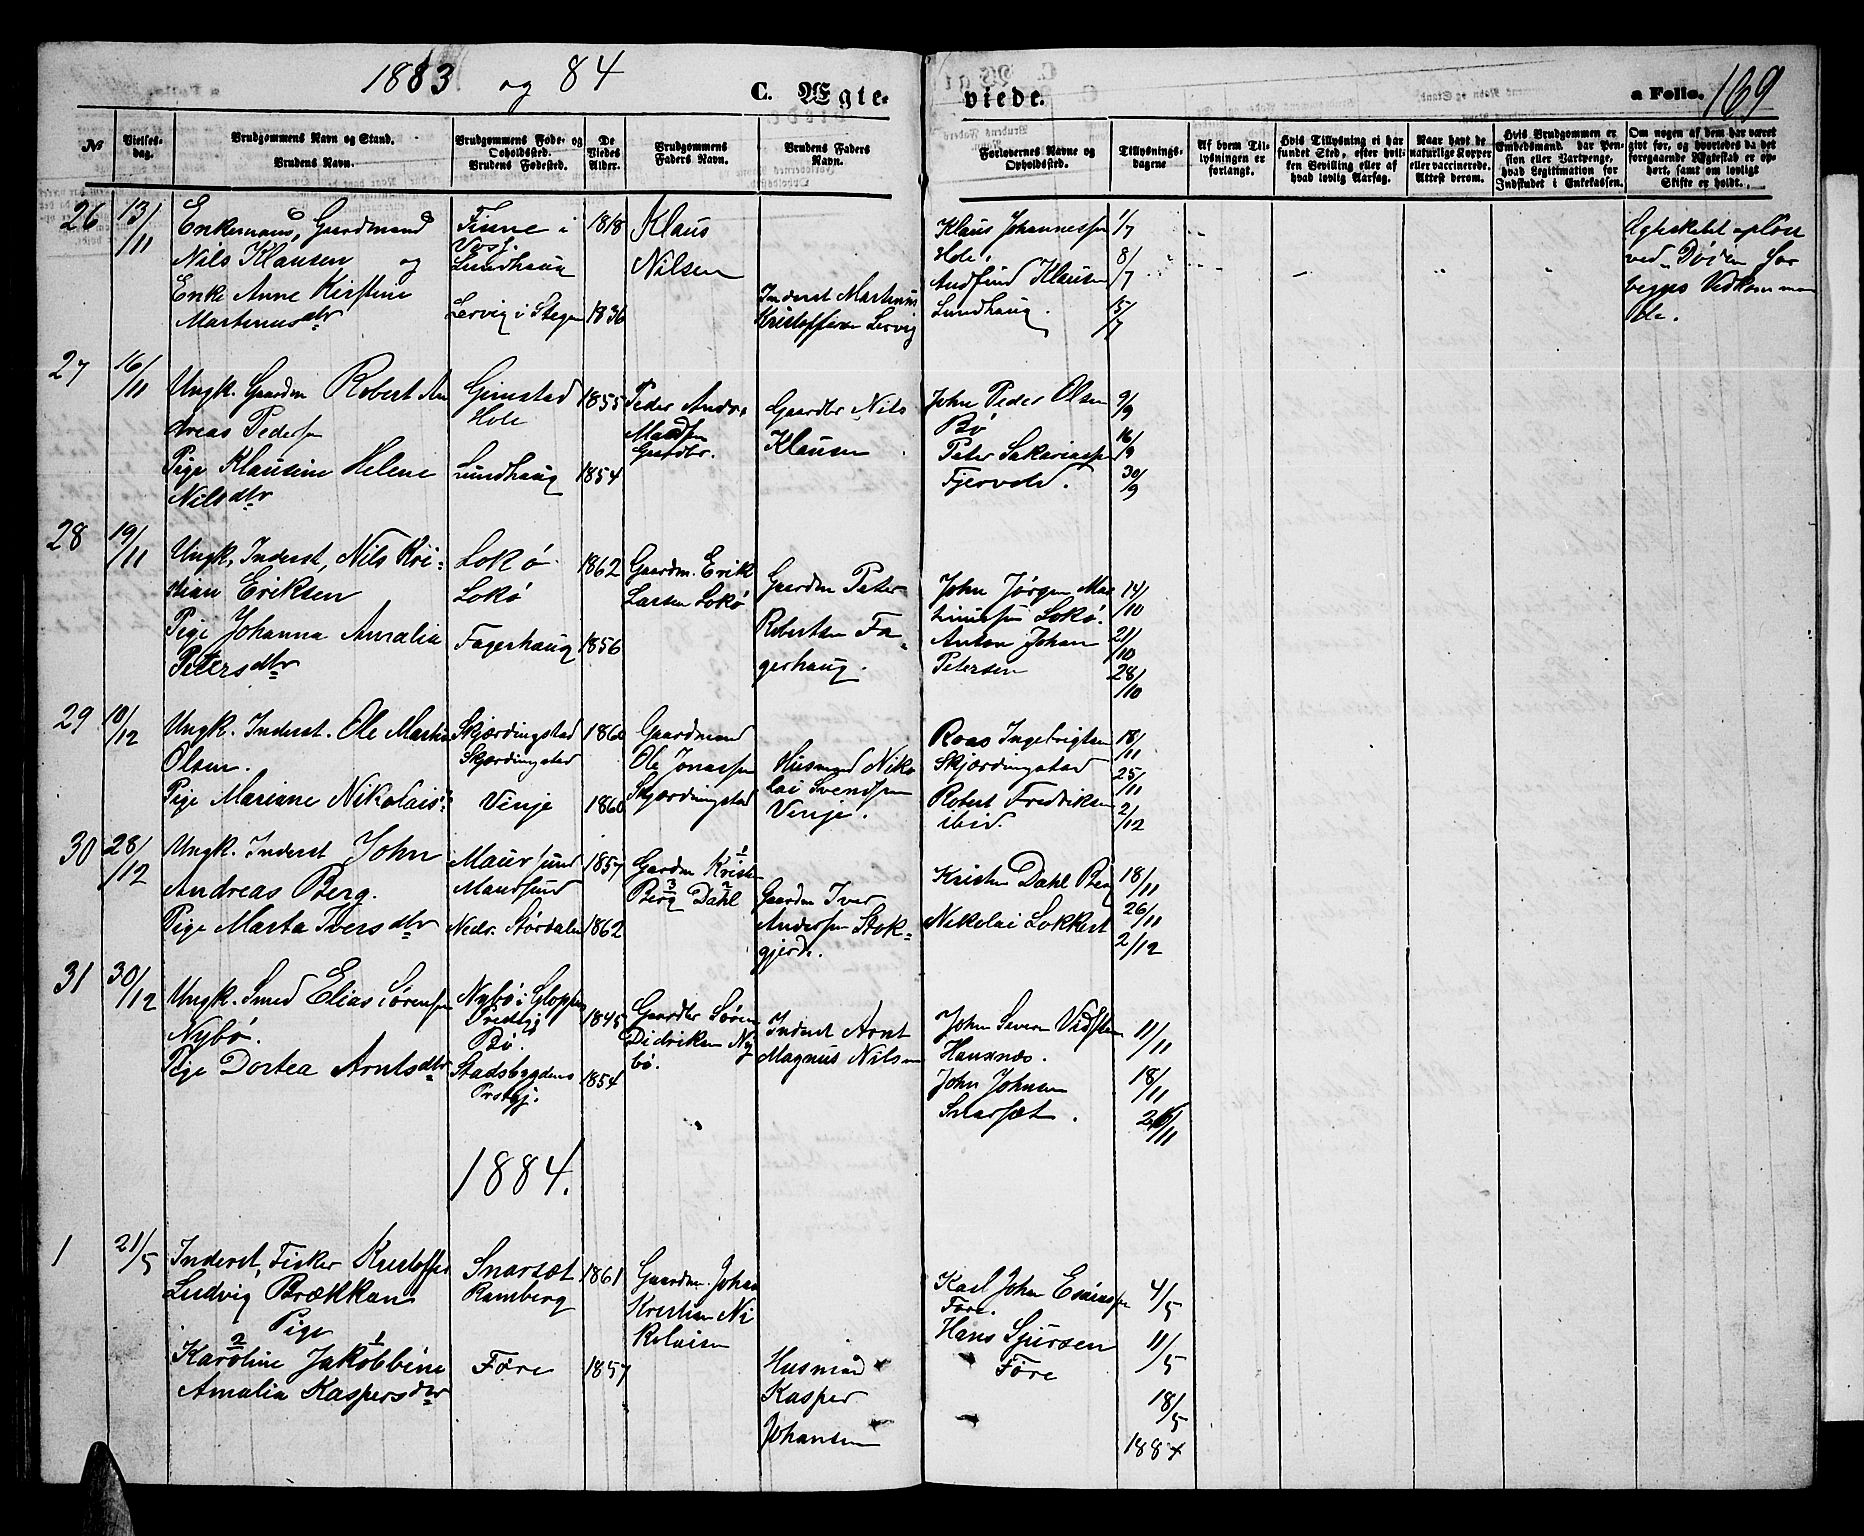 1883 og 84
C. Ægteviede.
a Folio. 169
№
Vielsesdag.
Brudgommens Navn og Stand.
Brudens Navn.
Brudgommens Føde- og Opholdssted.
Brudens Fødested.
De Viedes Alder.
Brudgommens Faders Navn.
Brudens Faders Navn.
Forlovernes Navne og Opholdssted.
Tillysningsdagene.
Af hvem Tillysningen er forlangt.
Hvis Tillysning ei har fundet Sted, efter hvilken Bevilling eller af hvad lovlig Aarsag.
Naar havt de naturlige Kopper eller vaccinerede. Attest derom.
Hvis Brudgommen er Embedsmand, der har Pension eller Vartpenge, hvad Legitimation for Indskudet i Enkekassen.
Om nogen af dem har været givt før, og hvorledes da det foregaaende Ægteskab er ophørt, samt om lovligt Skifte er holdt.
26 13/11
Enkemand, Gaardmand
Nils Klausen og
Enke Anne Kirstine
Martinusdtr
Finne i
Lundhaug
Lervig i Stegen
1818
1836
Klaus
Nilsen
Inderst Martinus
Kristoffersen Lervig
Klaus Johannessen
Hole.
Andfind Klausen
Lundhaug.
1/7
8/7
15/7
Ægteskabet opløst
ved Døden for
begges Vedkommende.
27 16/11
Ungk. Gaardm Robert An
dreas Pedersen
Pige Klausine Helene
Nilsdtr
Gimstad
Hole
Lundhaug
1855
1854
Peder Andr.
Madsen
Gaardbr.
Gaardbr Nils
Klausen
John Peder Olsen
Bø
Peter Sakariassen
Fjervold.
9/9
16/9
30/9
28 19/11
Ungk. Inderst, Nils Kri-
stian Eriksen
Pige Johanna Amalia
Petersdtr
Lokø
Lokø
Fagerhaug
1862
1856
Gaardm. Erik
Larsen Lokø
Gaardm Peter
Robertsen Fa-
gerhaug.
John Jørgen Mar
tinussen Lokø.
Anton Johan
Petersen
14/10
21/10
28/10
29 10/12
Ungk. Inderst. Ole Martin
Olsen.
Pige Mariane Nikolaisdtr
Skjærdingstad
Skjærdingstad
Vinje
1860
1860
Gaardmand
Ole Jonassen
Skjærdingstad
Husmand Niko
lai Svendsen
Vinje.
Roas Ingebrigtsen
Skjærdingstad
Robert Fredriksen
ibid.
18/11
25/11
2/12
30 28/12
Ungk. Inderst John
Andreas Berg.
Pige Marta Iversdtr
Maursund
Maursund
Nedr. Størdalen
1857
1862
Gardm Krist.
Berg Dahl
Gaardm Iver
Andersen Stok-
gjerd.
Kristen Dahl Berg
Nikolai Lokkert
18/11
26/11
2/12
31 30/12
Ungk. Smed Elias Sørensen
Nybø.
Pige Dortea Arntsdtr
Nybø i Gloppen
Prestgj
Bø.
Stadsbygdens
Prstgj.
1845
1854
Gaardbr Søren
Didriksen Ny
bø.
Inderst Arnt
Magnus Nilsen
John Severin Vidsten
Hauknæs.
John Johnsen
Snarsæt.
11/11
18/11
26/11
1884.
1 21/5
Inderst, Fisker Kristoffer
Ludvig Brækkan
Pige
Karoline Jakobbine
Amalia Kaspersdtr
Snarsæt
Ramberg
Føre
1861
1857
Gaardm. Johan
Kristian Ni
kolaisen
Husmand
Kasper
Johansen
Karl Johan Esaiassen
Føre.
Hans Sjursen
Føre
4/5
11/5
18/5
1884